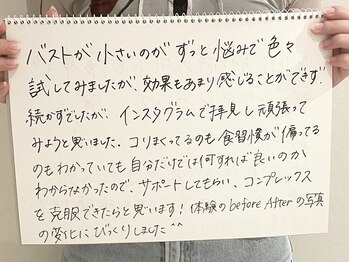 バストが小さいのがずっと悩みで色々
試してみましたが、効果もあまり感じることができず
続かずでしたが、インスタグラムで拝見し頑張って
みようと思いました。コリまくってるのも食習慣が偏ってる
のもわかっていても自分だけでは何すれば良いのか
わからなかったので、サポートしてもらい、コンプレックス
を克服できたらと思います！体験のbefore Afterの写真
の変化にびっくりしました^^